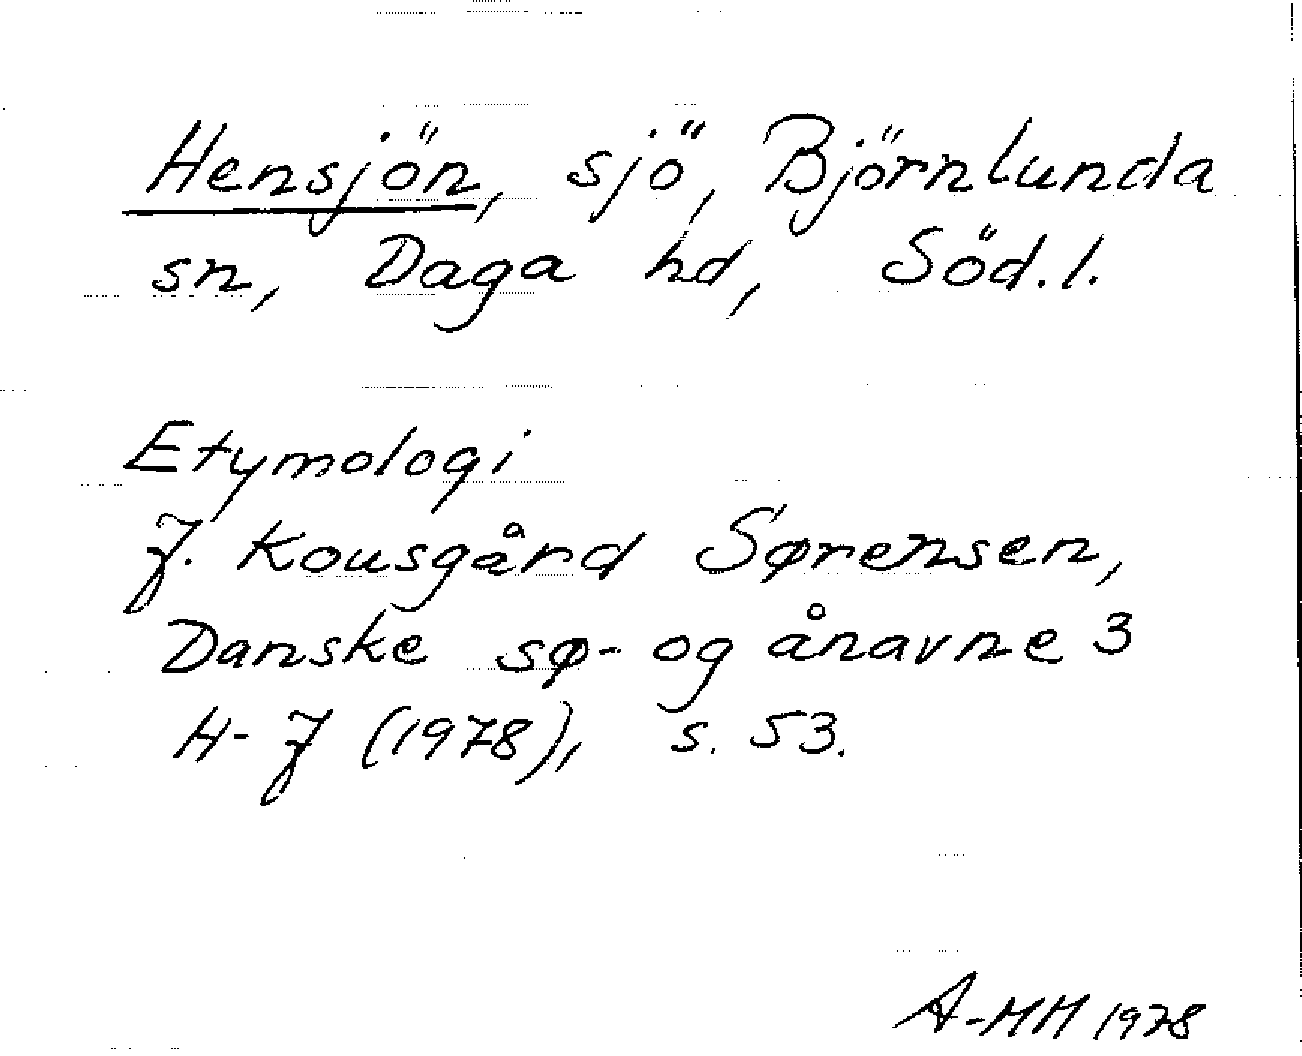 Hensjön, sjö, Björnlunda
sn, Daga hd, Söd.l.
Etymologi
J. Kousgård Sørensen,
Danske sø- og ånavne 3
H-J (1978), s. 53.
A-MH 1978